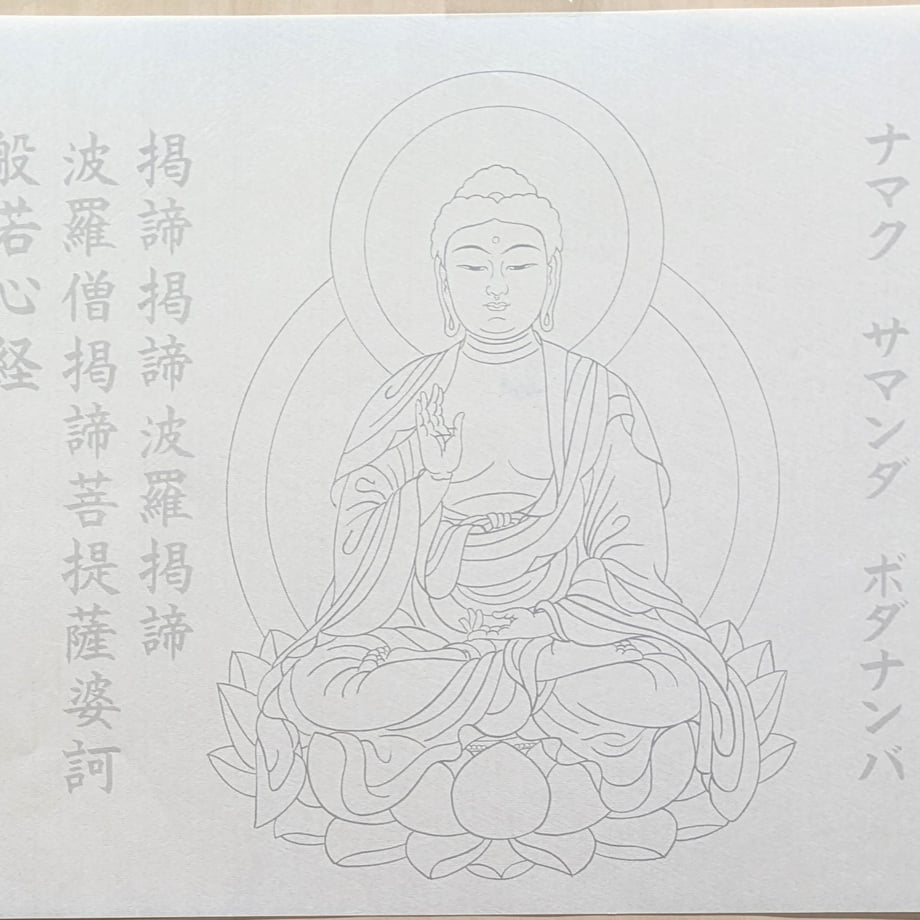 ナマク サマンダ ボダナンバ
掲諦掲諦波羅掲諦
波羅僧掲諦菩提薩婆訶
般若心経